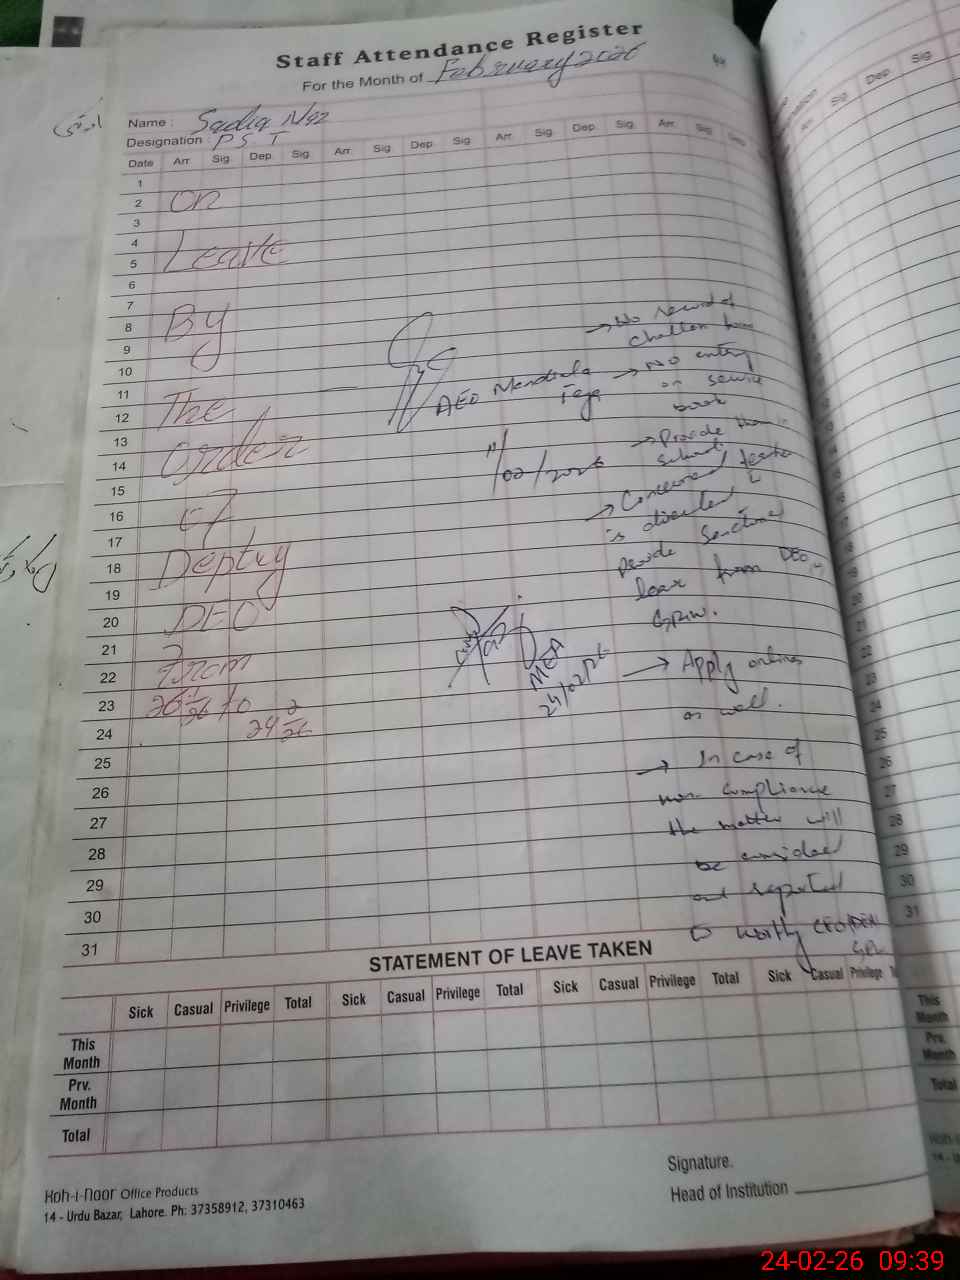 Staff Attendance Register
For the Month of February 2026
Name : Sadia Niaz
Designation : P S T
Date Arr. Sig. Dep. Sig. Arr. Sig. Dep. Sig. Arr. Sig. Dep. Sig. Arr. Sig.
1
2 on
3
4 Leave
5
6
7
8 By
9
10
11 The
12
13 order
14
15
16 of
17
18 Deptuy
19
20 DEO
21
22 From
23 26 1/26 to
24 24 2/26
25
26
27
28
29
30
31
AEO Mandiala
Tega
11/02/2026
MEA
24/02/26
→ No record of
challan
→ No entry
on service
book
→ Provide
→ Concerned teacher
is directed
provide Sanctioned
leave from DEO
GRW.
→ Apply online
as well.
→ In case of
non compliance
the matter will
be considered
and reported
to worthy CEO/DEA
STATEMENT OF LEAVE TAKEN
Sick Casual Privilege Total Sick Casual Privilege Total Sick Casual Privilege Total Sick Casual Privilege
This Month
Prv. Month
Total
Koh-i-noor Office Products
14 - Urdu Bazar, Lahore. Ph: 37358912, 37310463
Signature.
Head of Institution
Sig. Dep. Sig.
18
19
20
21
22
23
24
25
26
27
28
29
30
31
This Month
Prv. Month
Total
24-02-26 09:39